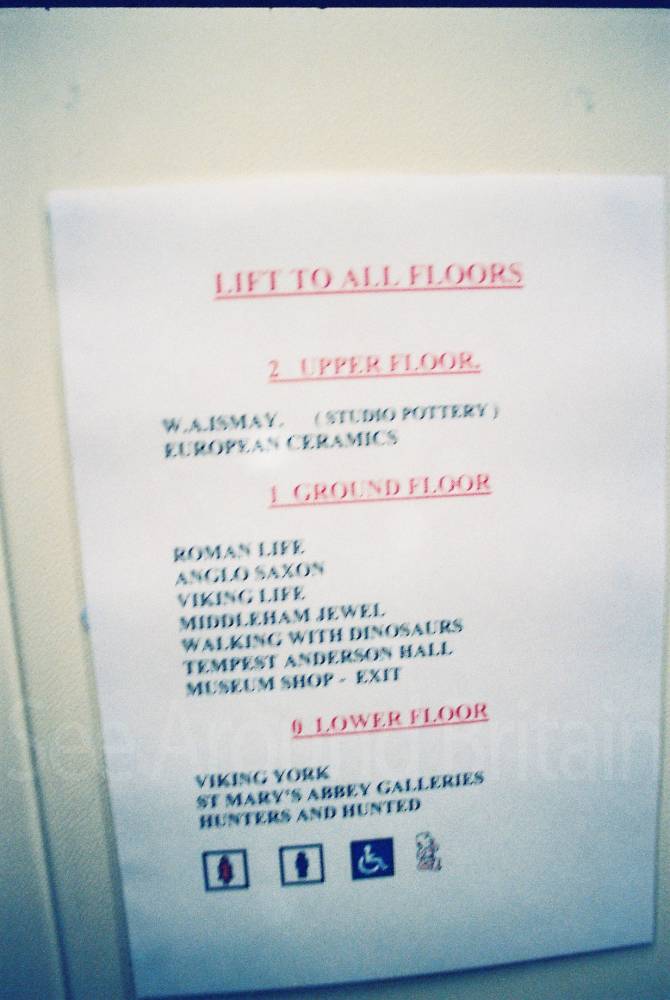 LIFT TO ALL FLOORS
2 UPPER FLOOR.
W.A.ISMAY. ( STUDIO POTTERY )
EUROPEAN CERAMICS
1 GROUND FLOOR
ROMAN LIFE
ANGLO SAXON
VIKING LIFE
MIDDLEHAM JEWEL
WALKING WITH DINOSAURS
TEMPEST ANDERSON HALL
MUSEUM SHOP - EXIT
0 LOWER FLOOR
See Around Britain
VIKING YORK
ST MARY'S ABBEY GALLERIES
HUNTERS AND HUNTED